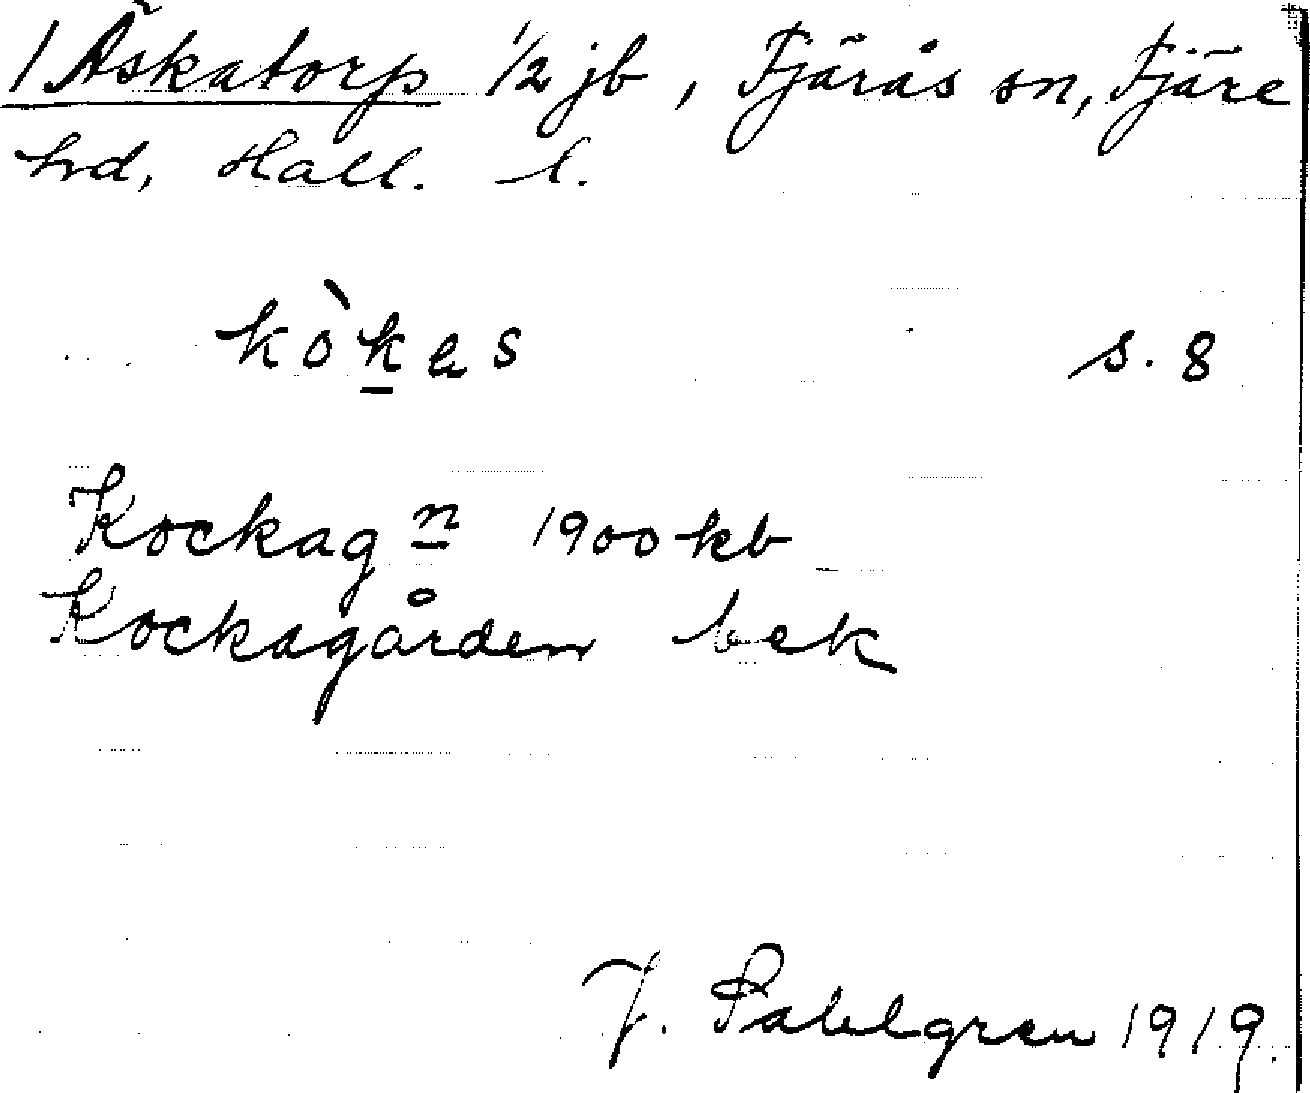 1 Äskatorp 1/2 jb, Fjärås sn, Fjäre
hd, Hall. l.
kòkas s. 8
Kockag n 1900 kb
Kockagården bek
J. Sahlgren 1919.